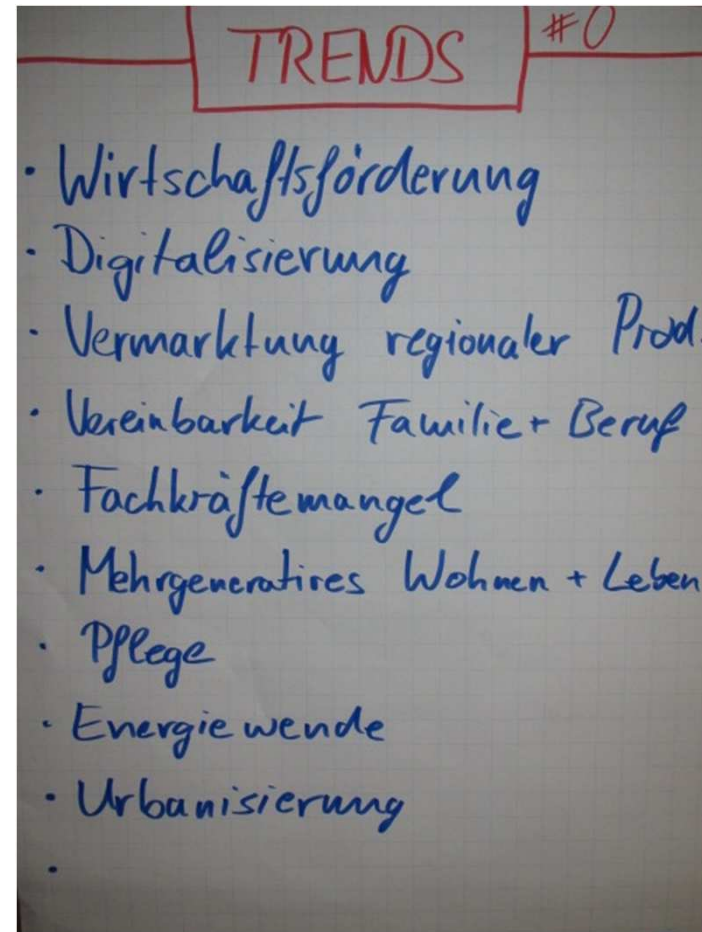 TRENDS #0
· Wirtschaftsförderung
· Digitalisierung
· Vermarktung regionaler Prod.
· Vereinbarkeit Familie + Beruf
· Fachkräftemangel
· Mehrgeneratives Wohnen + Leben
· Pflege
· Energiewende
· Urbanisierung
·